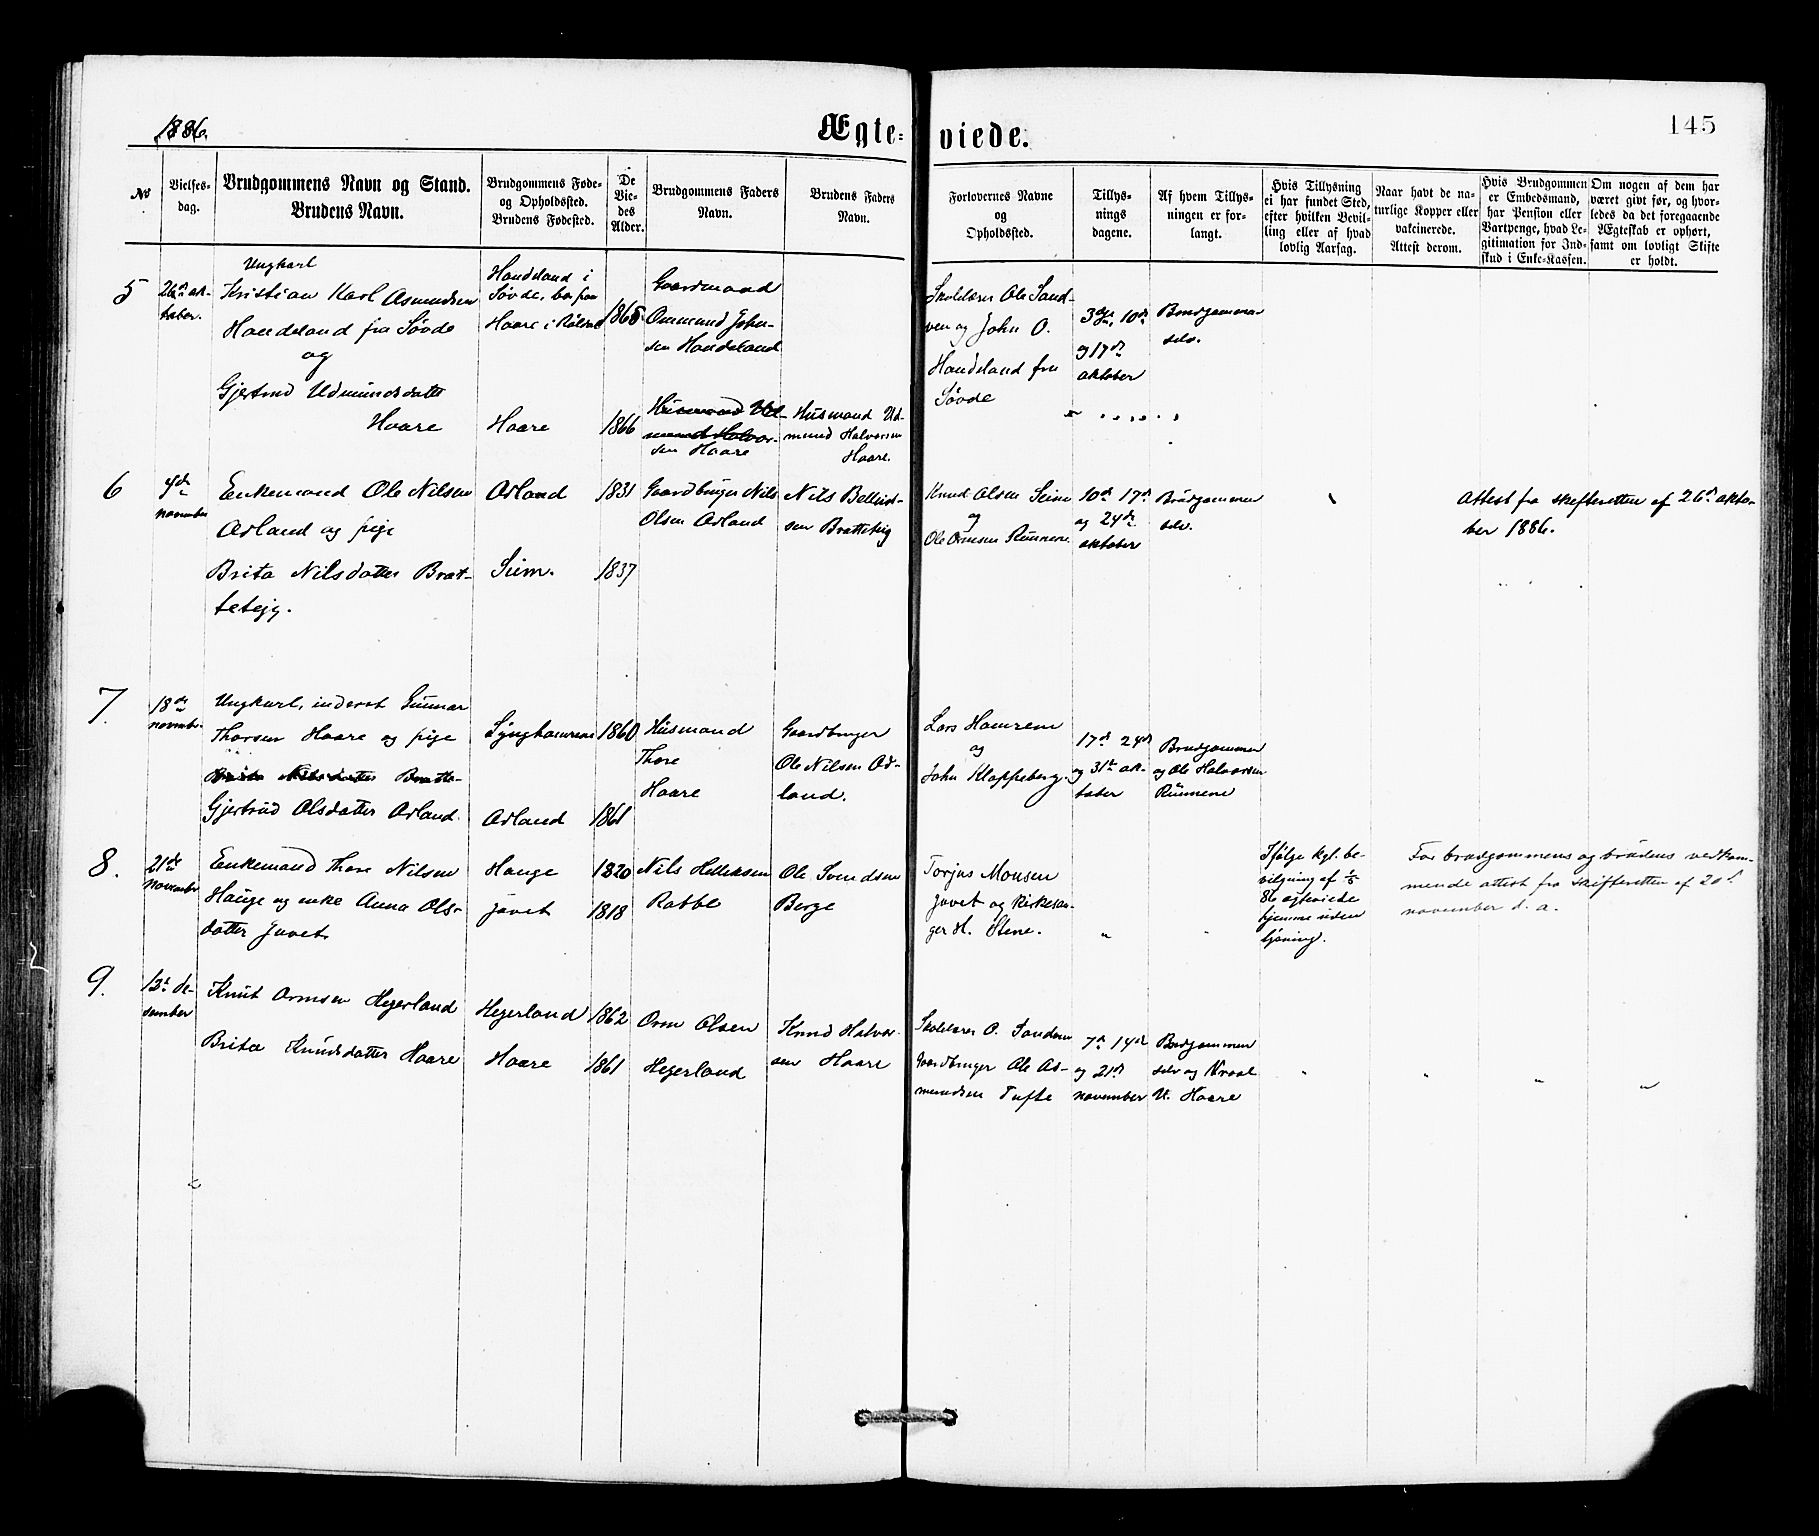 1886.
Ægte-
viede.
145
No
Vielses-
dag.
Brudgommens Navn og Stand.
Brudens Navn.
Brudgommens Føde-
og Opholdssted.
Brudens Fødested.
De
Vie-
des
Alder.
Brudgommens Faders
Navn.
Brudens Faders
Navn.
Forlovernes Navne
og
Opholdssted.
Tillys-
nings
dagene.
Af hvem Tillys-
ningen er for-
langt.
Hvis Tillysning
ei har fundet Sted,
efter hvilken Bevil-
ling eller af hvad
lovlig Aarsag.
Naar havt de na-
turlige Kopper eller
vakcinerede.
Attest derom.
Hvis Brudgommen
er Embedsmand,
har Pension eller
Vartpenge, hvad Le-
gitimation for Ind-
skud i Enke-Kassen.
Om nogen af dem har
været givt før, og hvor-
ledes da det foregaaende
Ægteskab er ophørt,
samt om lovligt Skifte
er holdt.
5
26de ok-
tober.
Ungkarl
Kristian Karl Asmundsen
Handeland fra Søvde
og
Gjertrud Udmundsdatter
Haare
Handeland i
Søvde, bor paa
Haare i Røldal
Haare
1865
1866
Gaardmand
Ommund John-
sen Handeland
Husmand Ud-
mund Halvor-
sen Haare
Husmand Ud-
mund Halvorsen
Haare.
Skolelærer Ole Sand-
ven og John O.
Handeland fra
Søvde
3die, 10de
og 17de
oktober
Brudgommen
selv.
6
4de
november
Enkemand Ole Nilsen
Arland og pige
Brita Nilsdatter Brat-
teteig.
Arland
Seim.
1831
1837
Gaardbruger Nils
Olsen Arland
Nils
sen Bratteteig
Knud Olsen Seim
og
Ole Ormsen Runnene
10de 17de
og 24de
oktober
Brudgommen
selv.
Attest fra skifteretten af 26de okto-
ber 1886.
7.
18de
novembr.
Ungkarl, inderst Gunnar
Thorsen Haare og pige
Brita Nilsdatter Bratte-
Gjertrud Olsdatter Arland.
Lynghamrene
Arland
1860
1861
Husmand
Thore
Haare
Gaardbruger
Ole Nilsen Ar-
land.
Lars Hamrene
og
John Kloppeberg.
17de 24de
og 31te ok-
tober
Brudgommen
og Ole Halvorsen
Runnene
8.
21de
november
Enkemand Thore Nilsen
Hauge og enke Anna Ols-
datter Juvet.
Hauge
Juvet
1820
1818
Nils Helleksen
Rabbe
Ole Svendsen
Berge
Torjus Monsen
Juvet og kirkesan-
ger H. Stene.
Ifølge kgl. be-
vilgning af
86 ægteviede
hjemme uden
lysning.
For brudgommens og brudens vedkom-
mende attest fra skifteretten af 20de
november d. a.
9.
13de de-
sember
Knut Ormsen Hegerland
Brita Knudsdatter Haare
Hegerland
Haare
1862
1861
Orm Olsen
Hegerland
Knud Halvor-
sen Haare
Skolelærer O. Sandven
Gaardbruger Ole As-
mundsen Tufte
7de 14de
og 21de
november
Brudgommen
selv og
U. Haare